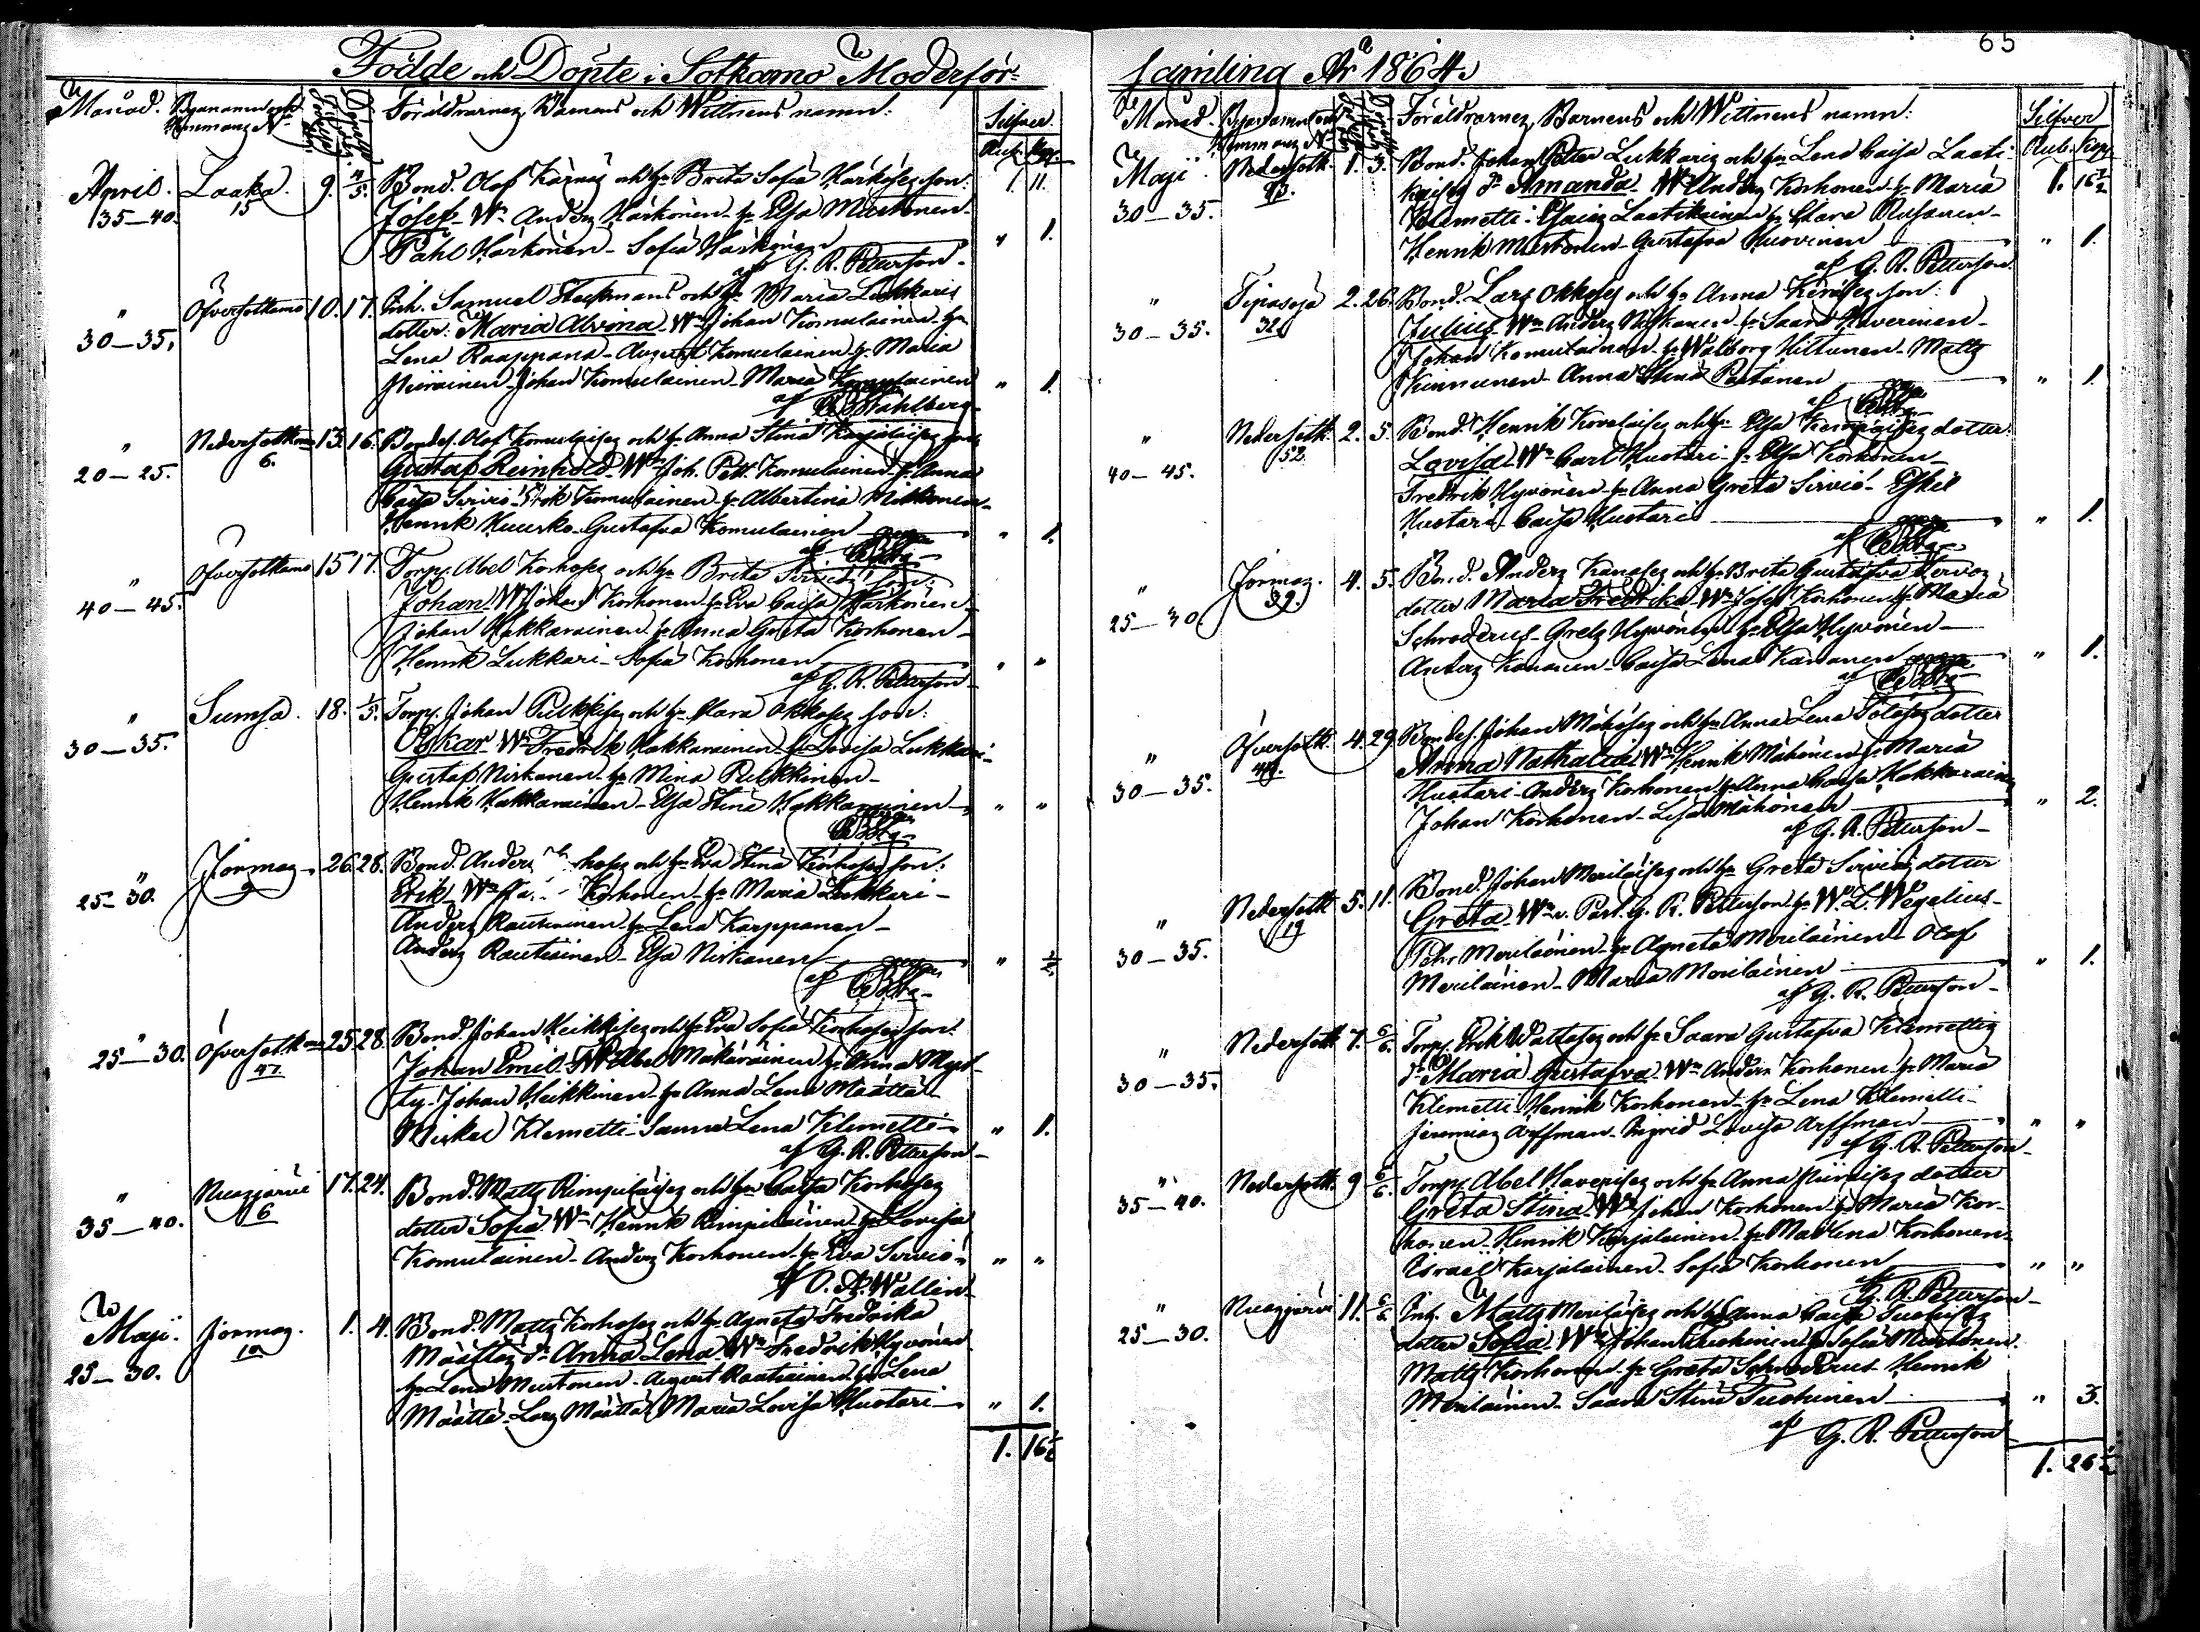 Födde och Döpte i Sotkamo Moderför-
Månad. Bynamn och Hemmans No Födelse Döpelse Föräldrarnes, Barnens och Wittnens namn: Silfver
Rub. Kop.
April. Laaka. 9. 4/5. Bond. Olof Kärnäs och h. Brita Sofia Härkösez son: 1. 11.
35–40. 15 Josef. Wn Anders Härkönen - h. Elsa Mustonen -
Påhl Härkönen - Sofia Härkönen " 1.
af G. R. Petterson -
" Öfversotkamo 10. 17. Inh. Samuel Stockmans och h. Maria Lukkaris
30–35. dotter. Maria Alvina. Wn Johan Komulainen - h.
Lena Raappana - August Komulainen h. Maria
Piirainen - Johan Komulainen - Maria Komulainen " 1.
af Ståhlberg -
" Nedersotkamo 13. 16. Bondes. Olof Komulaisez och h. Anna Stina Karjalaisez son
20–25. 6. Gustaf Reinhold. Wn Joh. Pett. Komulainen h. Anna
Caisa Serviö - Erik Komulainen - h. Albertina Mikkonen -
Henrik Huusko - Gustafva Komulainen " 1.
" Öfversotkamo 15 17. Torp. Abel Korhosez och h. Brita son:
40–45. Johan. Wn Johan Korhonen h. Eva Caisa Härkönen -
Johan Hakkarainen h. Anna Greta Korhonen -
Henrik Lukkari - Sofia Korhonen " "
af G. R. Petterson -
" Sumsa. 18. 1/5. Torp. Johan Pulkkisez och h. Clara Okkosez son:
30–35. Oskar. Wn Fredrik Hakkarainen - h. Lovisa Lukkari -
Gustaf Niskanen - h. Mina Pulkkinen -
Henrik Hakkarainen - Elsa Stina Hakkarainen " "
" Jormas. 26. 28. Bond. Anders och h. Eva Stina Korhosez son:
25–30. 9 Erik. Wn Korhonen h. Maria Lukkari -
Anders Rautiainen h. Lena Karppanen -
Anders Rautiainen - Elsa Niskanen " 1/2
af
" Öfversotkamo 25. 28. Bond. Johan Heikkisez och h. Eva Sofia Korhosez son:
25–30. 47. Johan Emil. Wn Abel Makarainen h. Anna
Johan Heikkinen - h. Anna Lena Määttä -
Mickel Klemetti - Sanna Lena Klemetti " 1.
af G. R. Petterson -
" Nuasjärvi 17. 24. Bond. Matts Rimpiläisez och h. Caisa Korhosez
35–40. 6 dotter Sofia. Wn Henrik Rimpiläinen h. Lovisa
Komulainen - Anders Korhonen h. Eva Serviö - " "
af O. A. Wallin -
Maji. Jormas. 1. 4. Bond. Matts Korhosez och h. Agneta Fredrika
25–30. 10 Määttäs dr Anna Lena. Wn Fredrik Hyvönen
h. Lena Mustonen - August Rautiainen h. Lena
Määttä - Lars Määttä Maria Lovisa Huotari " 1.
1. 16 1/2
65
samling År 1864.
Månad. Bynamn och Hemmans No Födelse Döpelse Föräldrarnes, Barnens och Wittnens namn: Silfver
Rub. Kop.
Maji Nedersotk. 1. 3. Bond. Johan Petter Lukkaris och h. Lena Caisa Laati- 1. 16 1/2
30–35. kaisez dr Amanda. Wn Anders Korhonen h. Maria
Klemetti - Esaias Laatikainen h. Clara Rusanen -
Henrik Mustonen - Gustafva Huovinen " 1.
af G. R. Petterson.
" Tipasoja 2. 26. Bond. Lars Okkosez och h. Anna son:
30–35. 32 Julius. Wn Anders Niskanen h. Saara Haverinen -
Johan Komulainen h. Walborg Kittunen - Matts
Kinnunen - Anna Stina Partanen " 1.
" Nedersotk. 2. 5. Bond. Henrik Kovalaisez och h. Elsa dotter
40–45. 52 Lovisa. Wn Carl Huotari - h. Elsa Korhonen -
Fredrik Hyvönen - h. Anna Greta Serviö - Eskil
Huotari - Caisa Huotari " 1.
" Jormas. 4. 5. Bond. Anders Kanasez och h. Brita Gustafva
25–30 39. dotter Maria Fredrika. Wn Josef Korhonen h. Maria
Schroderus - Grels Hyvönen - h. Elsa Hyvönen -
Anders Kananen - Caisa Lena Kananen " 1.
" Öfversotk. 4. 29. Bondes. Johan Mähösez och h. Anna Lena dotter
30–35. 44. Anna Nathalia. Wn Henrik Mähönen h. Maria
Huotari - Anders Korhonen h. Anna Caisa Hakkarainen
Johan Korhonen - Lisa Mähönen " 2.
af G. R. Petterson -
" Nedersotk 5. 11. Bond. Johan Meriläisez och h. Greta Serviös dotter
30–35. 19 Greta. Wn v. Past. G. R. Petterson h. W. L. Wegelius -
Pehr Meriläinen h. Agneta Meriläinen - Olof
Meriläinen - Maria Meriläinen " 1.
af G. R. Petterson -
" Nedersotk 7. 6/6. Torp. Erik Wattosez och h. Saara Gustafva Klemettis
30–35. dr Maria Gustafva. Wn Anders Korhonen h. Maria
Klemetti Henrik Korhonen h. Lena Klemetti -
Jeremias Arffman - Ingrid Lovisa Arffman " "
af G. R. Petterson -
" Nedersotk. 9 6/6. Torp. Abel Haverisez och h. Anna Piiraisez dotter
35–40. Greta Stina. Wn Johan Korhonen h. Maria Kor-
honen - Henrik Karjalainen h. Madlena Korhonen -
Esrael Karjalainen - Sofia Korhonen " "
af G. R. Petterson -
" Nuasjärvi 11. 6/6. Inh. Matts Meriläisez och h. Anna Caisa
25–30. dotter Sofia. Wn Johan Tuohinen h. Sofia Mustonen.
Matts Korhonen h. Greta Schroderus - Henrik
Meriläinen - Saara Stina Tuohinen " 3.
af G. R. Petterson
1. 26 1/2